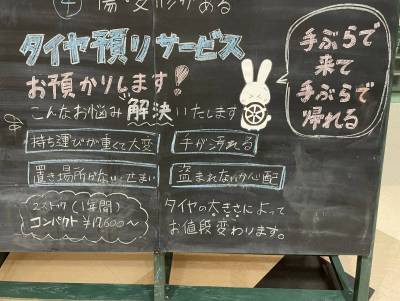 ④ 傷・変形がある
タイヤ預りサービス
お預かりします!
こんなお悩み解決いたします
持ち運びが重くて大変
手が汚れる
置き場所がない、せまい
盗まれないか心配
(1年間)
コンパクト ¥17,600~
タイヤの大きさによって
お値段変わります。
手ぶらで
来て
手ぶらで
帰れる